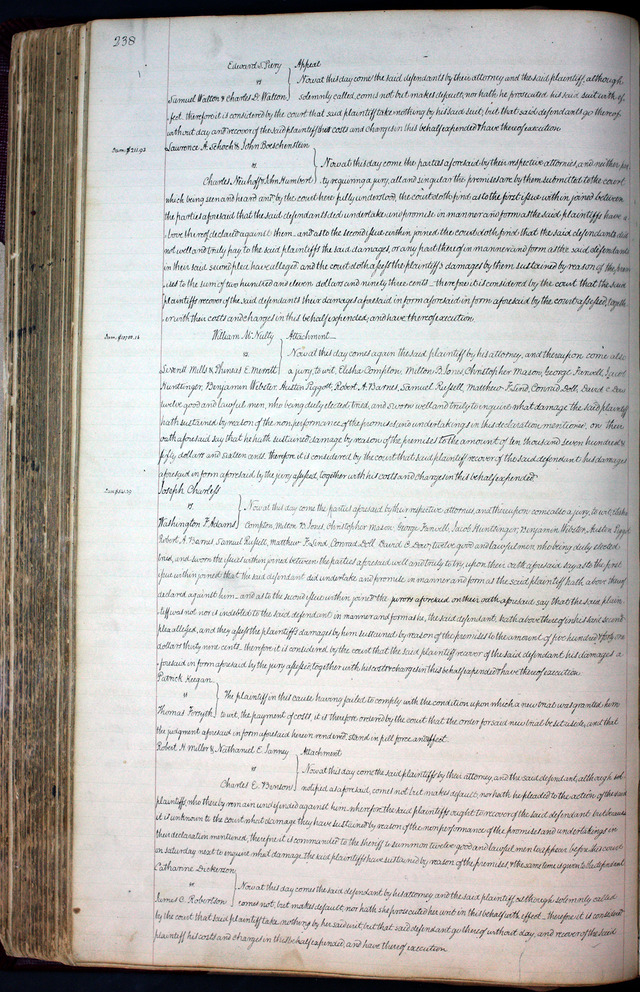 238
Edward S. Perry } Appeal
vs } Now at this day come the said defendants by their attorney and the said plaintiff, although
Samuel Watton & Charles D. Watton } solemnly called, comes not but makes default; nor hath he prosecuted his said suit with ef-
fect. therefore it is considered by the court that said plaintiff take nothing by his said suit; but that said defendants go thereof
without day and recover of the said plaintiff their costs and charges in this behalf expended & have thereof execution
Dam. $211.93
Lawrence A. Schoch & John Boeschenstein
vs } Now at this day come the parties aforesaid by their respective attornies, and neither par-
Charles Neuhoff & John Humbert } ty requiring a jury, all and singular the premises are by them submitted to the court
which being seen and heard and by the court here fully understood, the court doth find as to the first issue within joined between
the parties aforesaid that the said defendants did undertake and promise in manner and form as the said plaintiffs have a
bove thereof declared against them – and as to the second issue within joined the court doth find that the said defendants did
not well and truly pay to the said plaintiffs the said damages, or any part thereof in manner and form as the said defendants
in their said second plea have alleged – and the court doth assess the plaintiffs damages by them sustained by reason of the prem
ises to the sum of two hundred and eleven dollars and ninety three cents – therefore it is considered by the court that the said
plaintiffs recover of the said defendants their damages aforesaid in form aforesaid in form aforesaid by the court assessed, togeth
er with their costs and charges in this behalf expended, and have thereof execution
William McNulty } Attachment
vs } Now at this day comes again the said plaintiff by his attorney, and thereupon come also
& Phineas E. Merrett } a jury, to wit, Elisha Compton, Milton D. Jones, Christopher Mason, George Penvell, Jacob
Huntsinger, Benjamin Webster, Austin Piggott, Robert A. Barnes, Samuel Russell, Matthew F. Lind, Conrad Doll, David C.
twelve good and lawful men, who being duly elected, tried, and sworn well and truly to inquire what damage the said plaintiff
hath sustained by reason of the non performance of the promises and undertakings in this declaration mentioned, on their
oath aforesaid say that he hath sustained damage by reason of the premises to the amount of ten thousand seven hundred &
fifty dollars and sixteen cents. therefore it is considered by the court that the said plaintiff recover of the said defendant his damages
aforesaid in form aforesaid by the jury assessed, together with his costs and charges in this behalf expended
Joseph Charless
vs } Now at this day come the parties aforesaid by their respective attornies, and thereupon comes also a jury, to wit, Elisha
Washington F. Adams } Compton, Milton D. Jones, Christopher Mason, George Penvell, Jacob Huntsinger, Benjamin Webster, Austin Piggott
Robert A. Barnes, Samuel Russell, Matthew F. Lind, Conrad Doll, David C. twelve good and lawful men, who being duly elected
tried, and sworn the issues within joined between the parties aforesaid well and truly to try, upon their oath aforesaid say as to the first
issue within joined that the said defendant did undertake and promise in manner and form as the said plaintiff hath above thereof
declared against him – and as to the second issue within joined the jurors aforesaid on their oath aforesaid say that the said plain-
tiff was not nor is indebted to the said defendant in manner and form as he, the said defendant hath above thereof in his said second
plea alleged, and they assess the plaintiffs damages by him sustained by reason of the premises to the amount of five hundred & forty
dollars thirty nine cents. therefore it is considered by the court that the said plaintiff recover of the said defendant his damages a
foresaid in form aforesaid by the jury assessed, together with his costs & charges in this behalf expended & have thereof execution
Patrick Keegan
vs } The plaintiff in this cause having failed to comply with the condition upon which a new trial was granted him
Thomas Forsyth } to wit, the payment of costs, it is therefore ordered by the court that the order for said new trial be set aside, and that
the judgment aforesaid in form aforesaid herein rendered stand in full force and effect.
Robert H. Miller & Nathaniel E. Janney } Attachment
vs } Now at this day come the said plaintiffs by their attorney, and the said defendant, although sol
Charles E. Benson } notified as aforesaid, comes not but makes default; nor hath he pleaded to the action of the said
plaintiffs, who thereby remain undefended against him. wherefore the said plaintiffs ought to recover of the said defendant – but because
it is unknown to the court what damage they have sustained by reason of the non performance of the promises and undertakings in
their declaration mentioned, therefore it is commanded to the sheriff to summon twelve good and lawful men to appear before this court
on saturday next to enquire what damage the said plaintiffs have sustained by reason of the premises, & the same time is given to the defendant
Catharine Dickenson
vs } Now at this day comes the said defendant by his attorney and the said plaintiff, although solemnly called
James C. Robertson } comes not, but makes default, nor hath she prosecuted her writ in this behalf with effect – therefore it is considered
by the court that said plaintiff take nothing by her said writ, but that said defendant go thereof without day, and recover of the said
plaintiff his costs and charges in this behalf expended, and have thereof execution